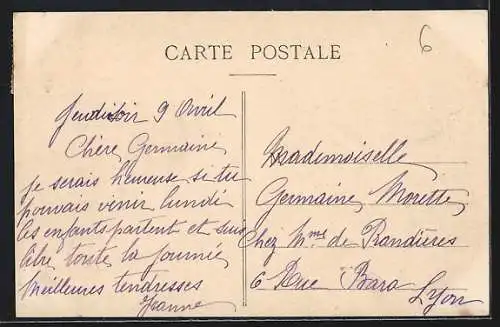 6
CARTE POSTALE
Jeudi soir 9 Avril
Chère Germaine
je serais heureuse si tu
pouvais venir lundi
les enfants partent et suis
libre toute la journée
Meilleures tendresses
Jeanne
Mademoiselle
Germaine Morette
Chez Mme de Prandières
6 Rue Bara
Lyon